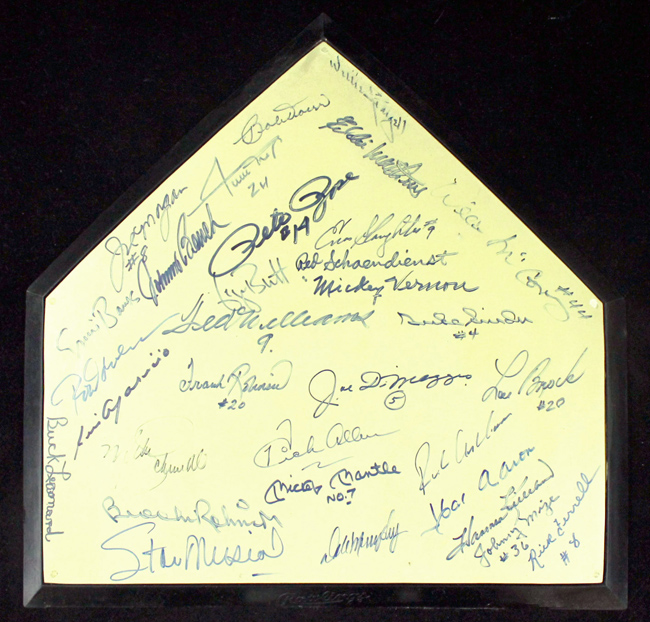 Willie Stargell
Bob Doerr
Eddie Mathews
Willie Mays
24
Joe Morgan
#8
Johnny Bench
Pete Rose
#14
Enos Slaughter #9
Willie McCovey #44
Red Schoendienst
George Brett
"Mickey Vernon
Ernie Banks
Ted Williams
9.
Duke Snider
#4
Rod Carew
Luis Aparicio
Frank Robinson
#20
Joe DiMaggio
5
Lou Brock
#20
Buck Leonard
Dick Allen
Mickey Mantle
NO. 7
Rich Ashburn
Hank Aaron
Brooks Robinson
Stan Musial
Harmon Killebrew
Johnny Mize
#36
Rick Ferrell
#8